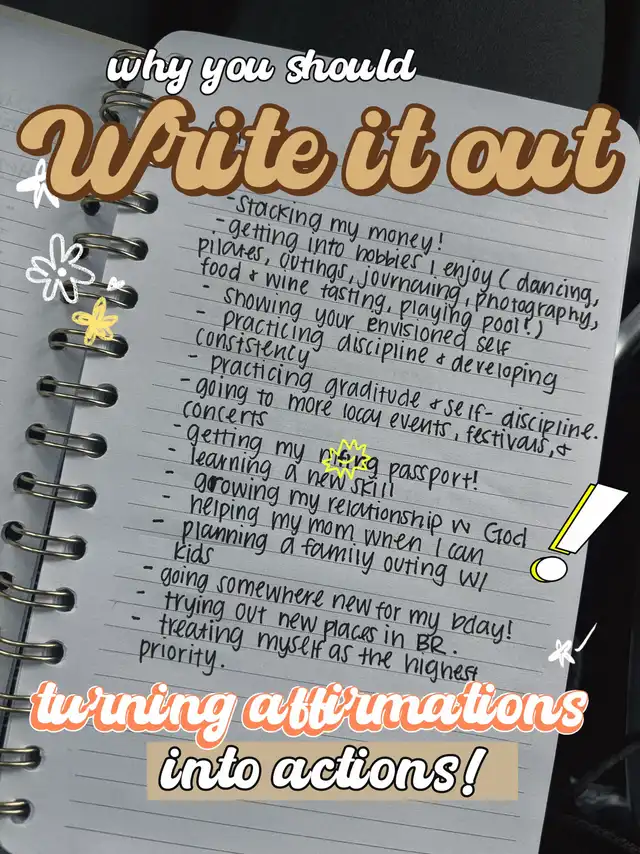 why you should
Write it out
- Stacking my money!
- getting into hobbies I enjoy ( dancing,
pilates, outings, journaling, photography,
food & wine tasting, playing pool!)
- showing your envisioned self
- practicing discipline & developing
conststency
- practicing graditude & self-discipline.
- going to more local events, festivals, &
concerts
- getting my passport!
- learning a new skill
- growing my relationship w God
- helping my mom when I can
- planning a family outing w/
kids
- going somewhere new for my bday!
- trying out new places in BR.
- treating myself as the highest
priority.
turning affirmations
into actions!